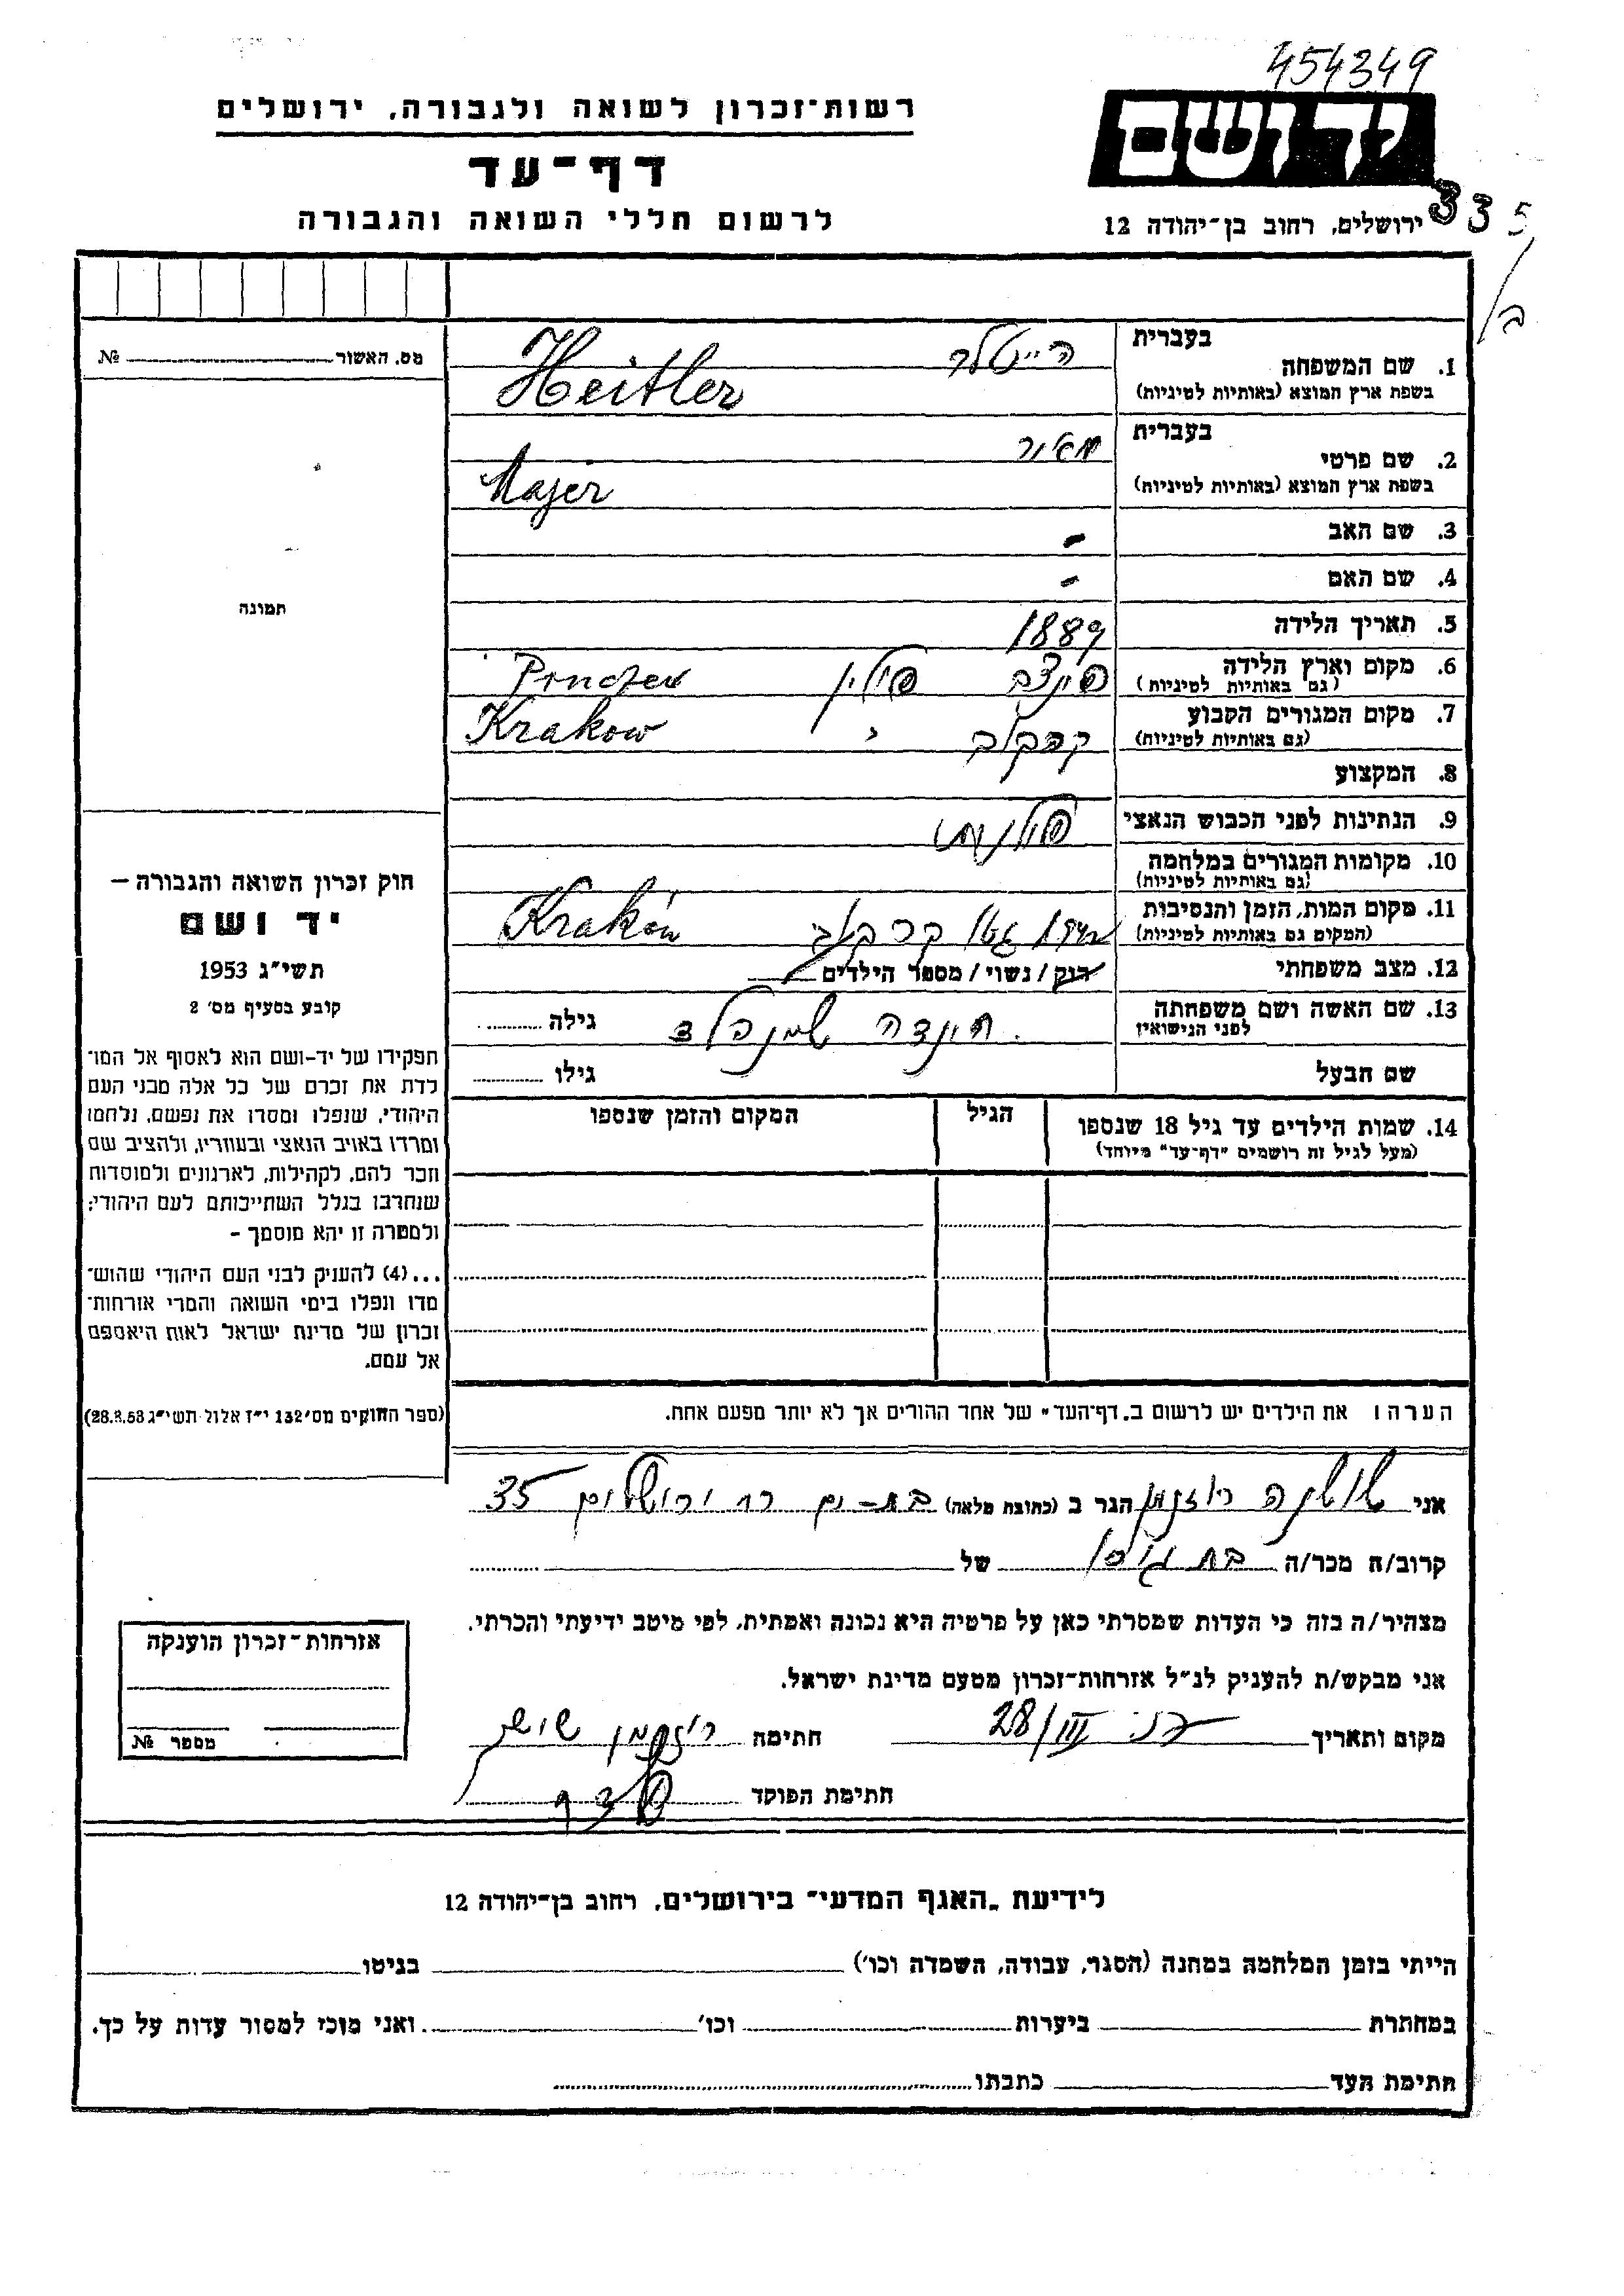 454349
רשות-זכרון לשואה ולגבורה, ירושלים
יד ושם
דף-עד
לרשום חללי השואה והגבורה
ירושלים, רחוב בן-יהודה 12
335
/ב
מס. האשור № 
בעברית הייטלר
1. שם המשפחה
בשפת ארץ המוצא (באותיות לטיניות) Heitler
בעברית מאיר
2. שם פרטי
בשפת ארץ המוצא (באותיות לטיניות) Majer
3. שם האב -
4. שם האם -
5. תאריך הלידה 1889
6. מקום וארץ הלידה פינצב פולין
(גם באותיות לטיניות)
7. מקום המגורים הקבוע קרקוב " Krakow
(גם באותיות לטיניות)
8. המקצוע
9. הנתינות לפני הכבוש הנאצי פולנית
10. מקומות המגורים במלחמה
(גם באותיות לטיניות)
11. מקום המות, הזמן והנסיבות גטו קרקוב Kraków
(המקום גם באותיות לטיניות)
12. מצב משפחתי רוק / נשוי / מספר הילדים
13. שם האשה ושם משפחתה
לפני הנישואין גילה
שם הבעל גילו
14. שמות הילדים עד גיל 18 שנספו הגיל המקום והזמן שנספו
(מעל לגיל זה רושמים "דף-עד" מיוחד)
הערה: את הילדים יש לרשום ב"דף-העד" של אחד ההורים אך לא יותר מפעם אחת.
תמונה
חוק זכרון השואה והגבורה –
יד ושם
תשי"ג 1953
קובע בסעיף מס' 2
תפקידו של יד-ושם הוא לאסוף אל המו־
לדת את זכרם של כל אלה מבני העם
היהודי, שנפלו ומסרו את נפשם, נלחמו
ומרדו באויב הנאצי ובעוזריו, ולהציב שם
וזכר להם, לקהילות, לארגונים ולמוסדות
שנחרבו בגלל השתייכותם לעם היהודי;
ולמטרה זו יהא מוסמך –
...(4) להעניק לבני העם היהודי שהוש־
מדו ונפלו בימי השואה והמרי אזרחות־
זכרון של מדינת ישראל לאות היאספם
אל עמם.
(ספר החוקים מס' 132 י"ז אלול תשי"ג 28.8.53)
אני שושנה רוזנמן הגר ב (כתובת מלאה) בת-ים רח ירושלים 35
קרוב/ה מכר/ה בת גיסו של
מצהיר/ה בזה כי העדות שמסרתי כאן על פרטיה היא נכונה ואמתית, לפי מיטב ידיעתי והכרתי.
אני מבקש/ת להעניק לנ"ל אזרחות-זכרון מטעם מדינת ישראל.
מקום ותאריך 28/III חתימה רוזנמן שוש
חתימת הפוקד
אזרחות-זכרון הוענקה
מספר №
לידיעת "האגף המדעי" בירושלים, רחוב בן-יהודה 12
הייתי בזמן המלחמה במחנה (הסגר, עבודה, השמדה וכו') בגיטו
במחתרת ביערות וכו' ואני מוכן למסור עדות על כך.
חתימת העד כתבתו